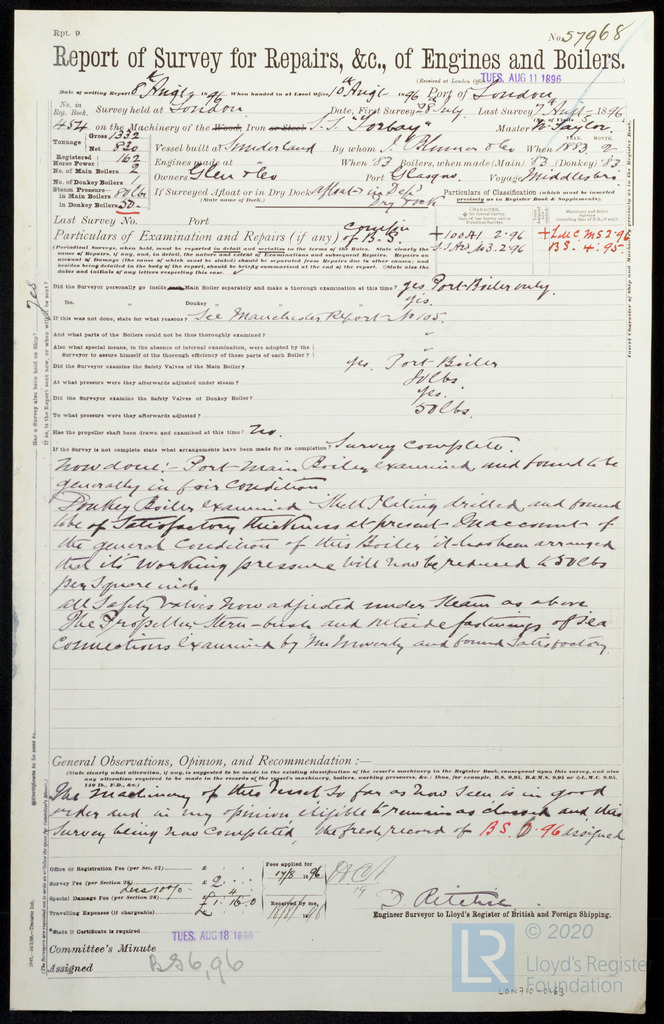 Rpt. 9.
No. 57968
Report of Survey for Repairs, &c., of Engines and Boilers.
(Received at London Office TUES. AUG 11 1896
Date of writing Report 8th Augt 1896 When handed in at Local Office 10th Augt 1896 Port of London
No. in Reg. Book. Survey held at London Date, First Survey 28 July Last Survey 7th Augt 1896
454 on the Machinery of the Wood, Iron or Steel S.S. "Torbay" Master W. Taylor
Tonnage Gross 1332 Net 830 Vessel built at Sunderland By whom J. Blumer & Co When 1883 2
Registered Horse Power 162 Engines made at " When '83 Boilers, when made (Main) 83 (Donkey) 83
No. of Main Boilers 2 Owners Glen & Co Port Glasgow Voyage Middlesbro
No. of Donkey Boilers 1
Steam Pressure in Main Boilers 80 lbs in Donkey Boilers 50
If Surveyed Afloat or in Dry Dock Afloat & in Dry Dock
(State name of Dock.)
Particulars of Classification (which must be inserted precisely as in Register Book & Supplements).
Last Survey No. Port
Particulars of Examination and Repairs (if any) Compln of B.S.
+100A1 2.96
+LMC MS 2.96
BS. 4.95
(Periodical Surveys, when held, must be reported in detail and seriatim in the terms of the Rules. State clearly the cause of Repairs, if any, and, in detail, the nature and extent of Examinations and subsequent Repairs. Repairs on account of Damage (the cause of which must be stated) should be separated from Repairs due to other causes; and besides being detailed in the body of the report, should be briefly summarised at the end of the report. State also the dates and initials of any letters respecting this case.
Did the Surveyor personally go inside Main Boiler separately and make a thorough examination at this time? yes Port Boiler only.
Do. Donkey " " " yes.
If this was not done, state for what reasons? See Manchester Report No 105.
And what parts of the Boilers could not be thus thoroughly examined? "
Also what special means, in the absence of internal examination, were adopted by the Surveyor to assure himself of the thorough efficiency of those parts of each Boiler? "
Did the Surveyor examine the Safety Valves of the Main Boiler? yes. Port Boiler
At what pressure were they afterwards adjusted under steam? 80 lbs.
Did the Surveyor examine the Safety Valves of Donkey Boiler? yes.
To what pressure were they afterwards adjusted? 50 lbs.
Has the propeller shaft been drawn and examined at this time? no.
If the Survey is not complete state what arrangements have been made for its completion? Survey complete.
Now done:- Port Main Boiler examined and found to be
generally in fair condition
Donkey Boiler examined Shell Plating drilled and found
to be of Satisfactory thickness at present. On account of
the general condition of this Boiler it has been arranged
that its working pressure will now be reduced to 50 lbs
per square inch.
All Safety valves now adjusted under steam as above
The Propeller Stern-bush and outside fastenings of Sea
Connections examined by and found Satisfactory.
General Observations, Opinion, and Recommendation :—
(State clearly what alteration, if any, is suggested to be made in the existing classification of the vessel's machinery in the Register Book, consequent upon this survey, and also any alteration required to be made in the records of the vessel's machinery, boilers, working pressures, &c.; thus, for example, B.S. 9,95, B.&M.S. 9,95 or L.M.C. 9,95, 140 lb., F.D., &c.)
The Machinery of this Vessel so far as now seen is in good
order and in my opinion eligible to remain as classed and this
Survey being now completed, the fresh record of BS. 6.96 assigned
Office or Registration Fee (per Sec. 27) £ : :
Survey Fee (per Section 28) £ 2 : :
Less 10% 4
Special Damage Fee (per Section 28) £ 1 : 16 : 0
Travelling Expenses (if chargeable) £
Fees applied for 17/8 1896
Received by me, 18/8/1896
D Ritchie
Engineer Surveyor to Lloyd's Register of British and Foreign Shipping.
State if Certificate is required
TUES. AUG 18 1896
Committee's Minute
Assigned BS 6,96
LR © 2020
Lloyd's Register
Foundation
LON710-0163